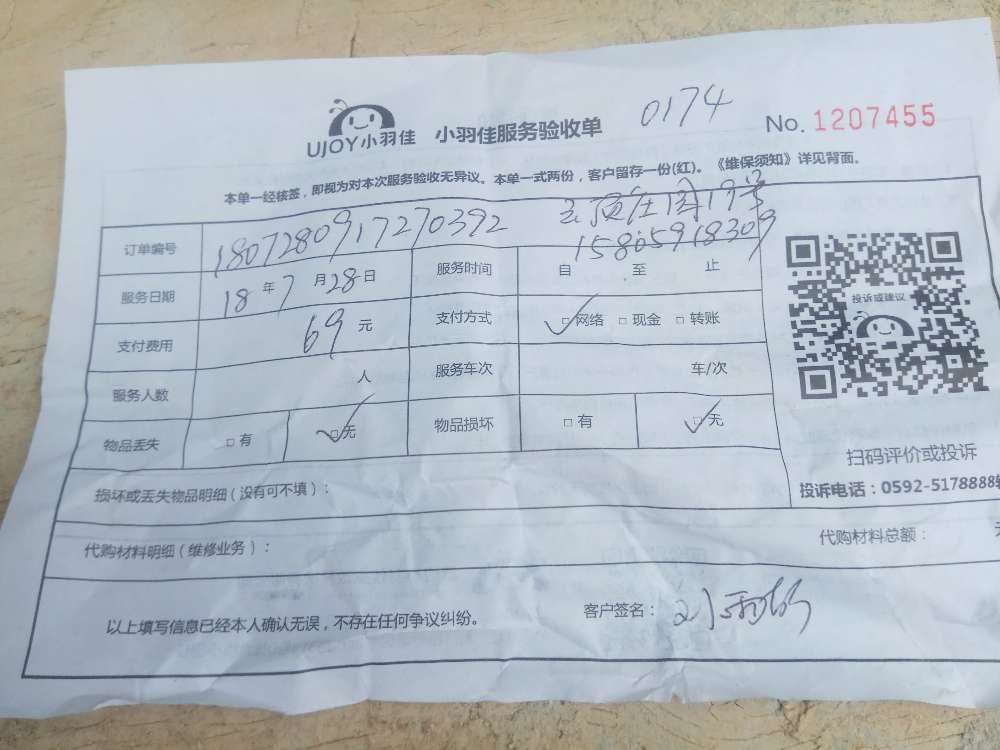 UJOY小羽佳 小羽佳服务验收单 0174 No. 1207455
本单一经核签，即视为对本次服务验收无异议。本单一式两份，客户留存一份(红)。《维保须知》详见背面。
订单编号 1807280917270392 庄园17号
15865918309
服务日期 18年7月28日 服务时间 自 至 止
支付费用 69元 支付方式 □网络 □现金 □转账
服务人数 人 服务车次 车/次
物品丢失 □有 □无 物品损坏 □有 □无
投诉或建议
扫码评价或投诉
投诉电话：0592-5178888转
损坏或丢失物品明细（没有可不填）：
代购材料明细（维修业务）： 代购材料总额：
以上填写信息已经本人确认无误，不存在任何争议纠纷。 客户签名：